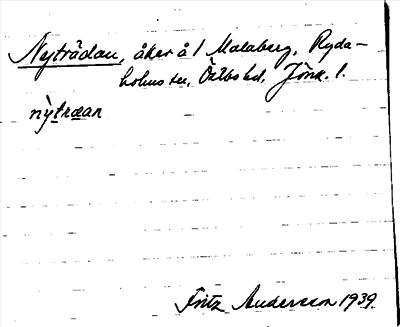 Nyträdan, åker å 1 Malaberg, Ryda-
holms sn, Östbo hd, Jönk. l.
nỳtræan
Fritz Andersson 1939.